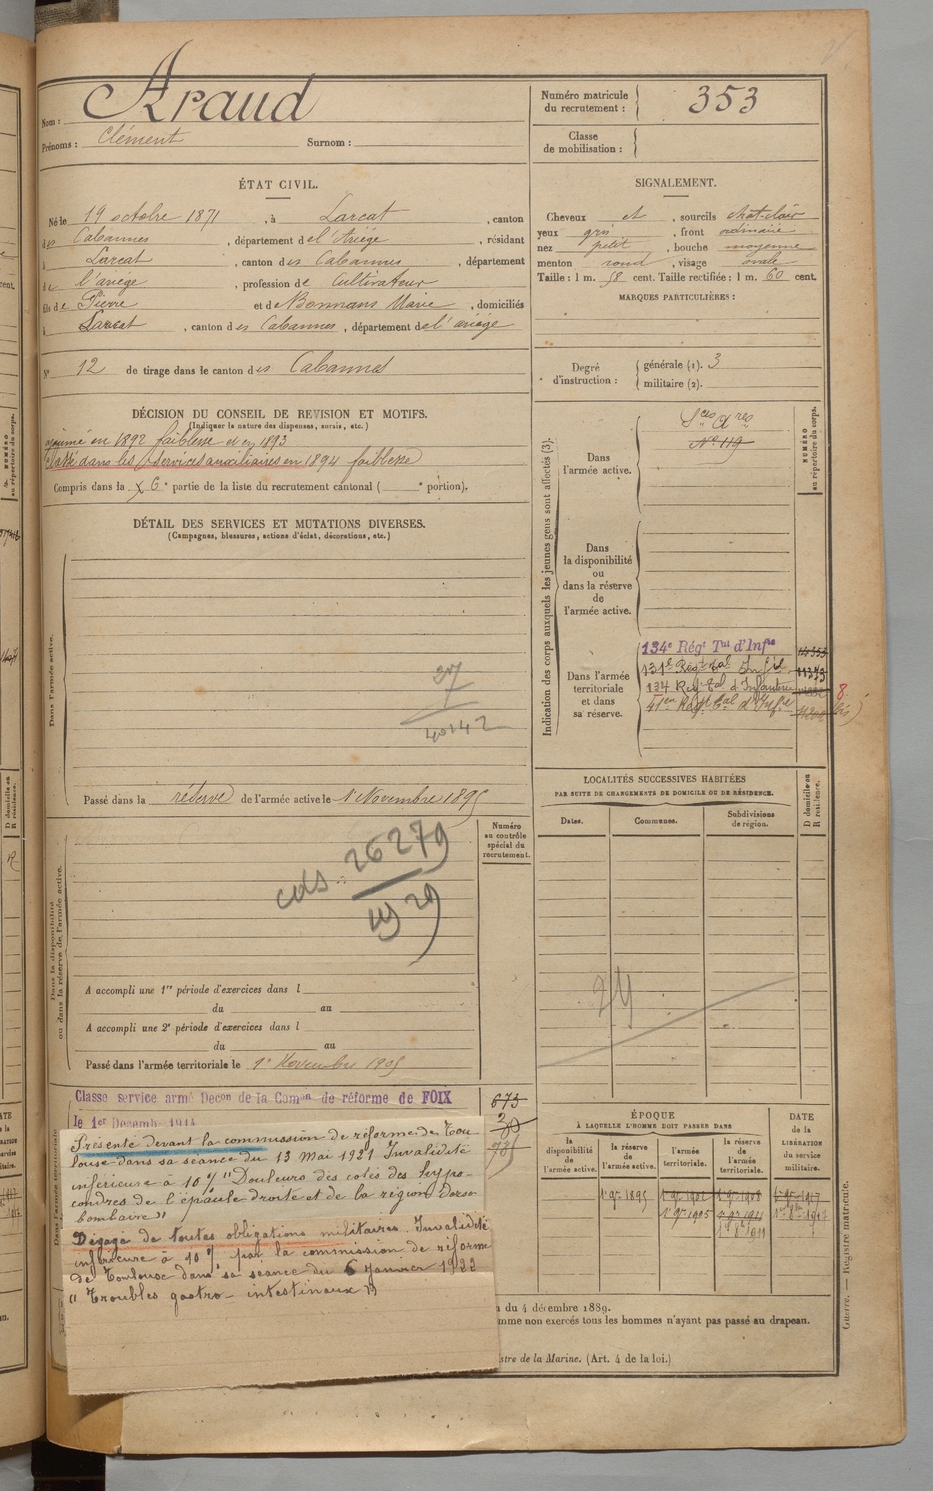 Nom : Araud
Prénoms : Clément Surnom :
Numéro matricule du recrutement : 353
Classe de mobilisation :
ÉTAT CIVIL.
Né le 19 octobre 1871, à Larcat, canton
des Cabannes, département de l'Ariège, résidant
à Larcat, canton des Cabannes, département
de l'ariège, profession de Cultivateur
fils de Pierre et de Bonnans Marie, domiciliés
à Larcat, canton des Cabannes, département de l'ariège
N° 12 de tirage dans le canton des Cabannes
SIGNALEMENT.
Cheveux et, sourcils chat-clair
yeux gris, front ordinaire
nez petit, bouche moyenne
menton rond, visage ovale
Taille : 1 m. 58 cent. Taille rectifiée : 1 m. 60 cent.
MARQUES PARTICULIÈRES :
Degré d'instruction : générale (1). 3
militaire (2).
DÉCISION DU CONSEIL DE REVISION ET MOTIFS.
(Indiquer la nature des dispenses, sursis, etc.)
ajourné en 1892 faiblesse et en 1893
Classé dans les services auxiliaires en 1894 faiblesse
Compris dans la 6e partie de la liste du recrutement cantonal ( e portion).
DÉTAIL DES SERVICES ET MUTATIONS DIVERSES.
(Campagnes, blessures, actions d'éclat, décorations, etc.)
Dans l'armée active.
27
40142
Passé dans la réserve de l'armée active le 1er Novembre 1895
Dans la disponibilité ou dans la réserve de l'armée active.
Numéro au contrôle spécial du recrutement.
cds : 26279
1929
A accompli une 1re période d'exercices dans l
du au
A accompli une 2e période d'exercices dans l
du au
Passé dans l'armée territoriale le 1er Novembre 1905
Classe service armé Decon de la Comon de réforme de FOIX
le 1er Decemb 1914
673
Présenté devant la commission de réforme de Tou-
louse dans sa séance du 13 Mai 1921 Invalidité
inférieure à 10 % "Douleurs des cotés des hypo-
condres de l'épaule droite et de la région dorso
lombaire"
Dégagé de toutes obligations militaires. Invalidité
inférieure à 10 % par la commission de réforme
de Toulouse dans sa séance du 6 Janvier 1922
"Troubles gastro-intestinaux"
Indication des corps auxquels les jeunes gens sont affectés (3).
NUMÉRO au répertoire du corps.
Dans l'armée active.
Sces Ares
N° 119
Dans la disponibilité ou dans la réserve de l'armée active.
Dans l'armée territoriale et dans sa réserve.
134e Régt Tal d'Infie
131e Regt tal Inf ie 11373
134 Reg tal d'Infanterie
41em Regt tal d'Infie
8
LOCALITÉS SUCCESSIVES HABITÉES
PAR SUITE DE CHANGEMENTS DE DOMICILE OU DE RÉSIDENCE.
D domicile ou R résidence.
Dates. Communes. Subdivisions de région.
ÉPOQUE
À LAQUELLE L'HOMME DOIT PASSER DANS
la disponibilité de l'armée active. la réserve de l'armée active. l'armée territoriale. la réserve de l'armée territoriale.
DATE de la LIBÉRATION du service militaire.
1er 9bre 1895
1er 9bre 1905
n du 4 décembre 1889.
mme non exercés tous les hommes n'ayant pas passé au drapeau.
stre de la Marine. (Art. 4 de la loi.)
Guerre. — Registre matricule.